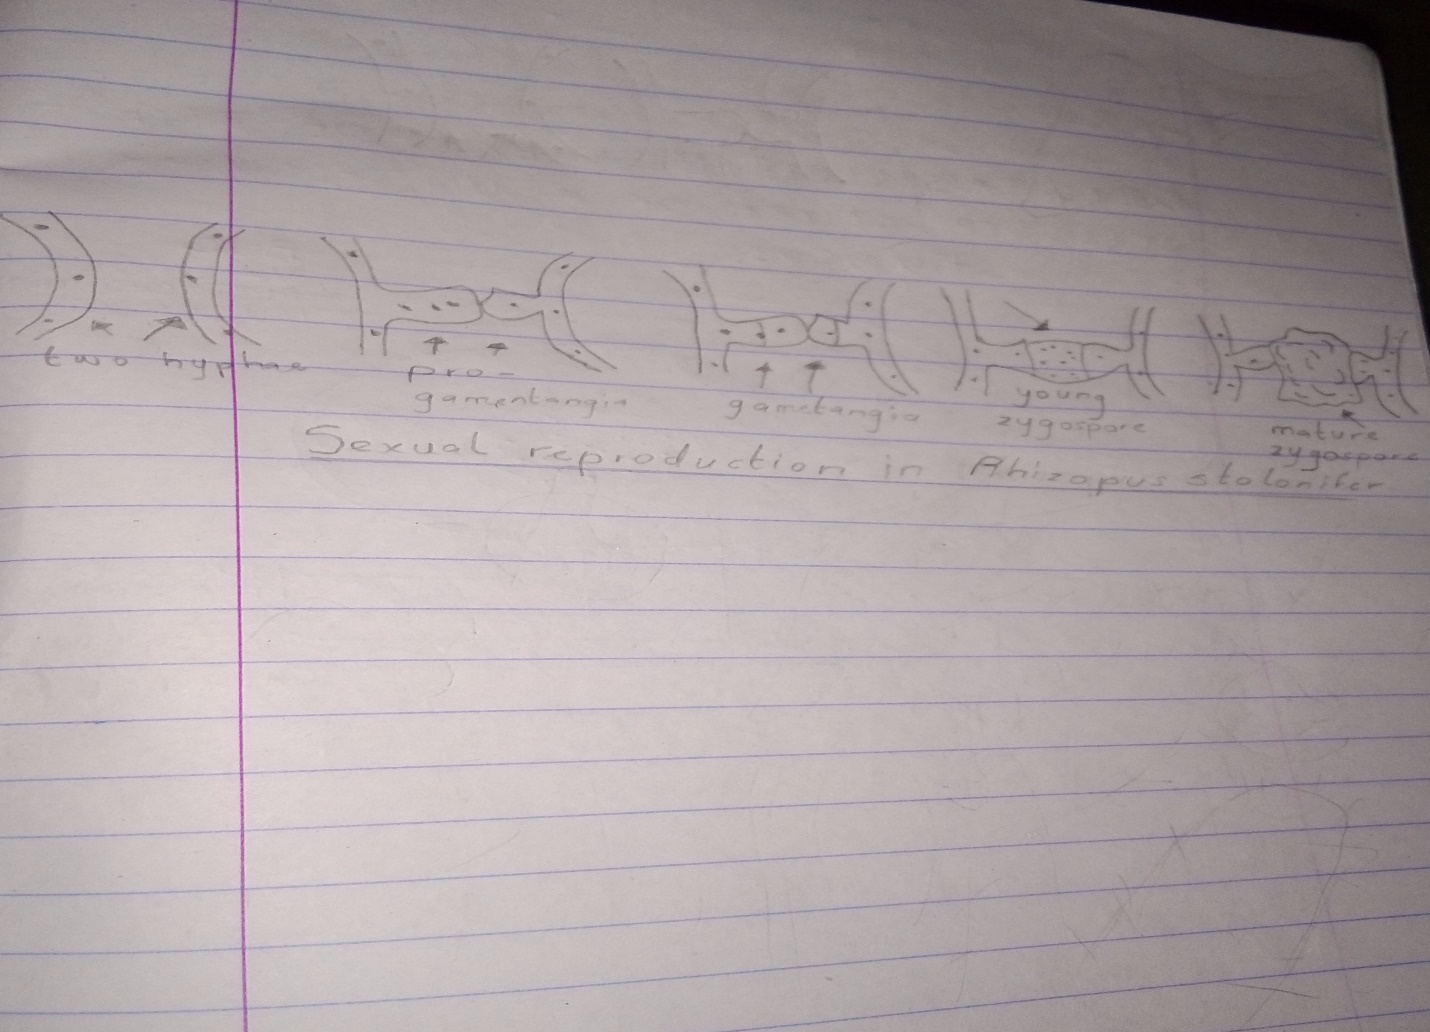 two hyphae
pro-
gamentangia
gametangia
young
zygospore
mature
zygospore
Sexual reproduction in Rhizopus stolonifer